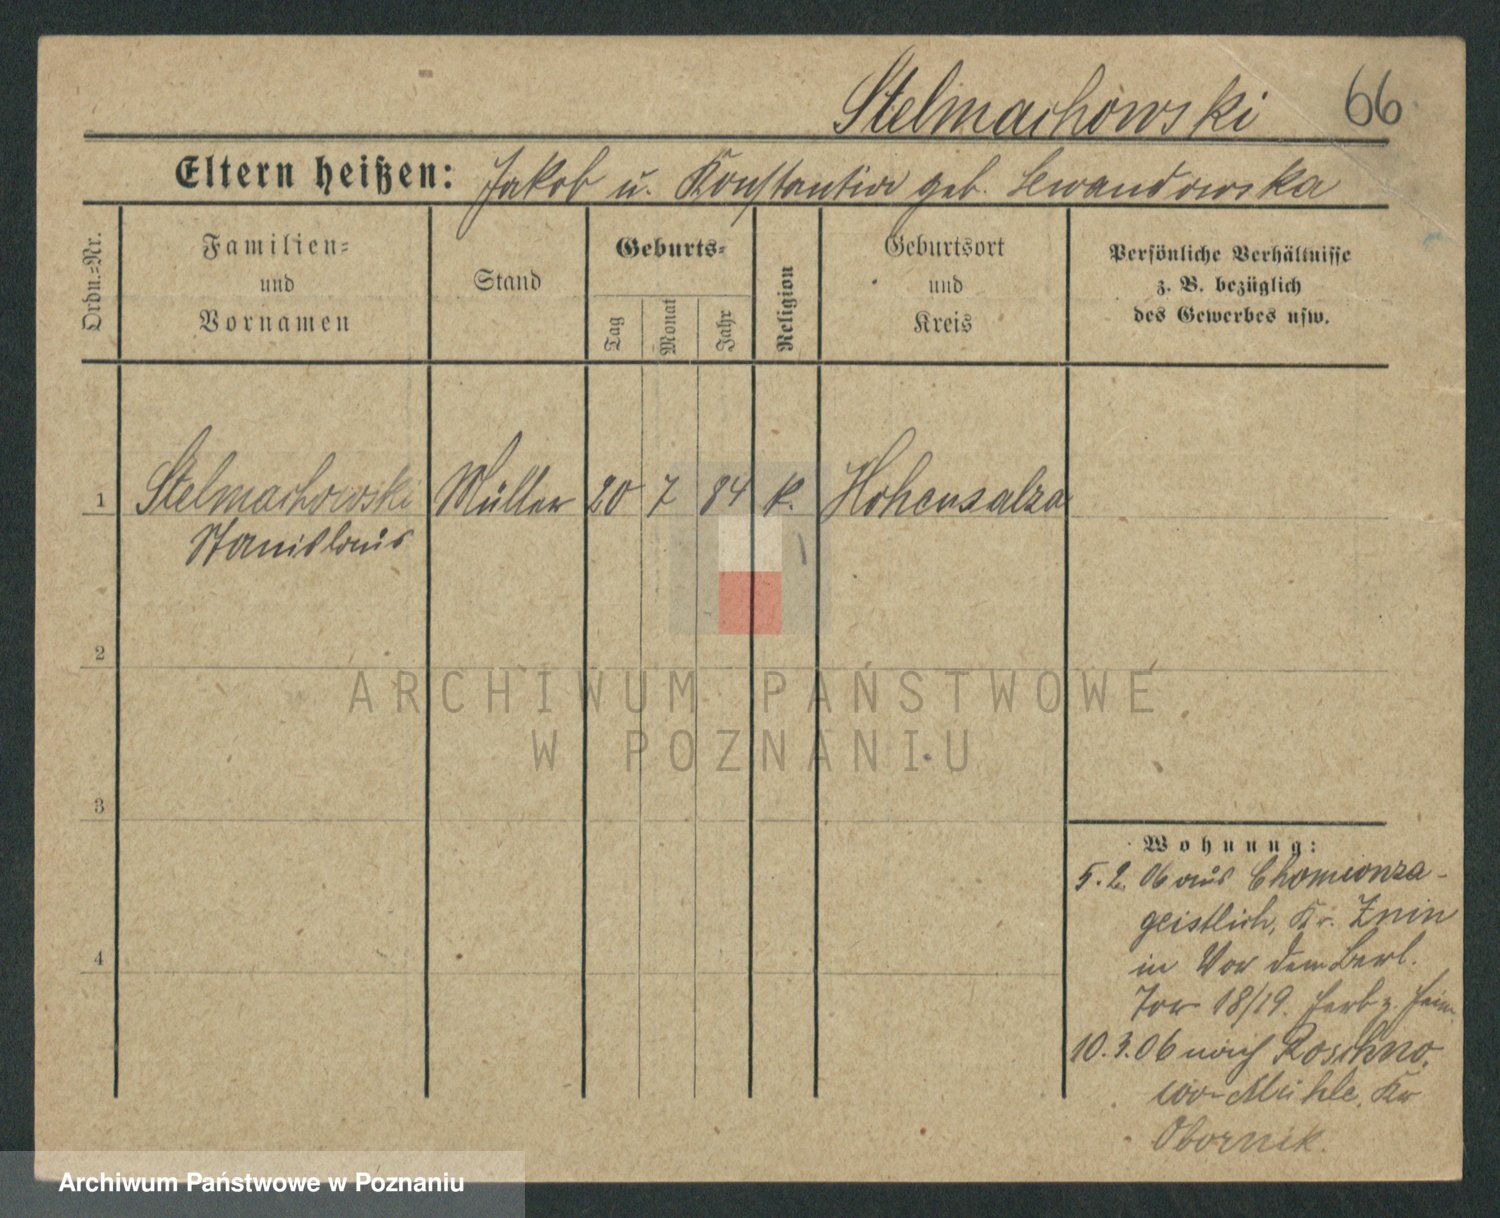 Stelmachowski 66
Eltern heißen: Jakob u. Konstantia geb. Lewandowska
Ordn.=Nr.
Familien=
und
Vornamen
Stand
Geburts=
Tag
Monat
Jahr
Religion
Geburtsort
und
Kreis
Persönliche Verhältnisse
z. B. bezüglich
des Gewerbes usw.
1 Stelmachowski Müller 20 7 84 k. Hohensalza
Stanislaus
2
3
4
ARCHIWUM PAŃSTWOWE
W POZNANIU
Wohnung:
5.2.06 aus Chomionza-
geistlich, Kr. Znin
in Vor dem Berl.
Tor 18/19. Herb. z. Heim.
10.3.06 nach Roschno.
wo-Mühle, Kr
Obornik.
Archiwum Państwowe w Poznaniu